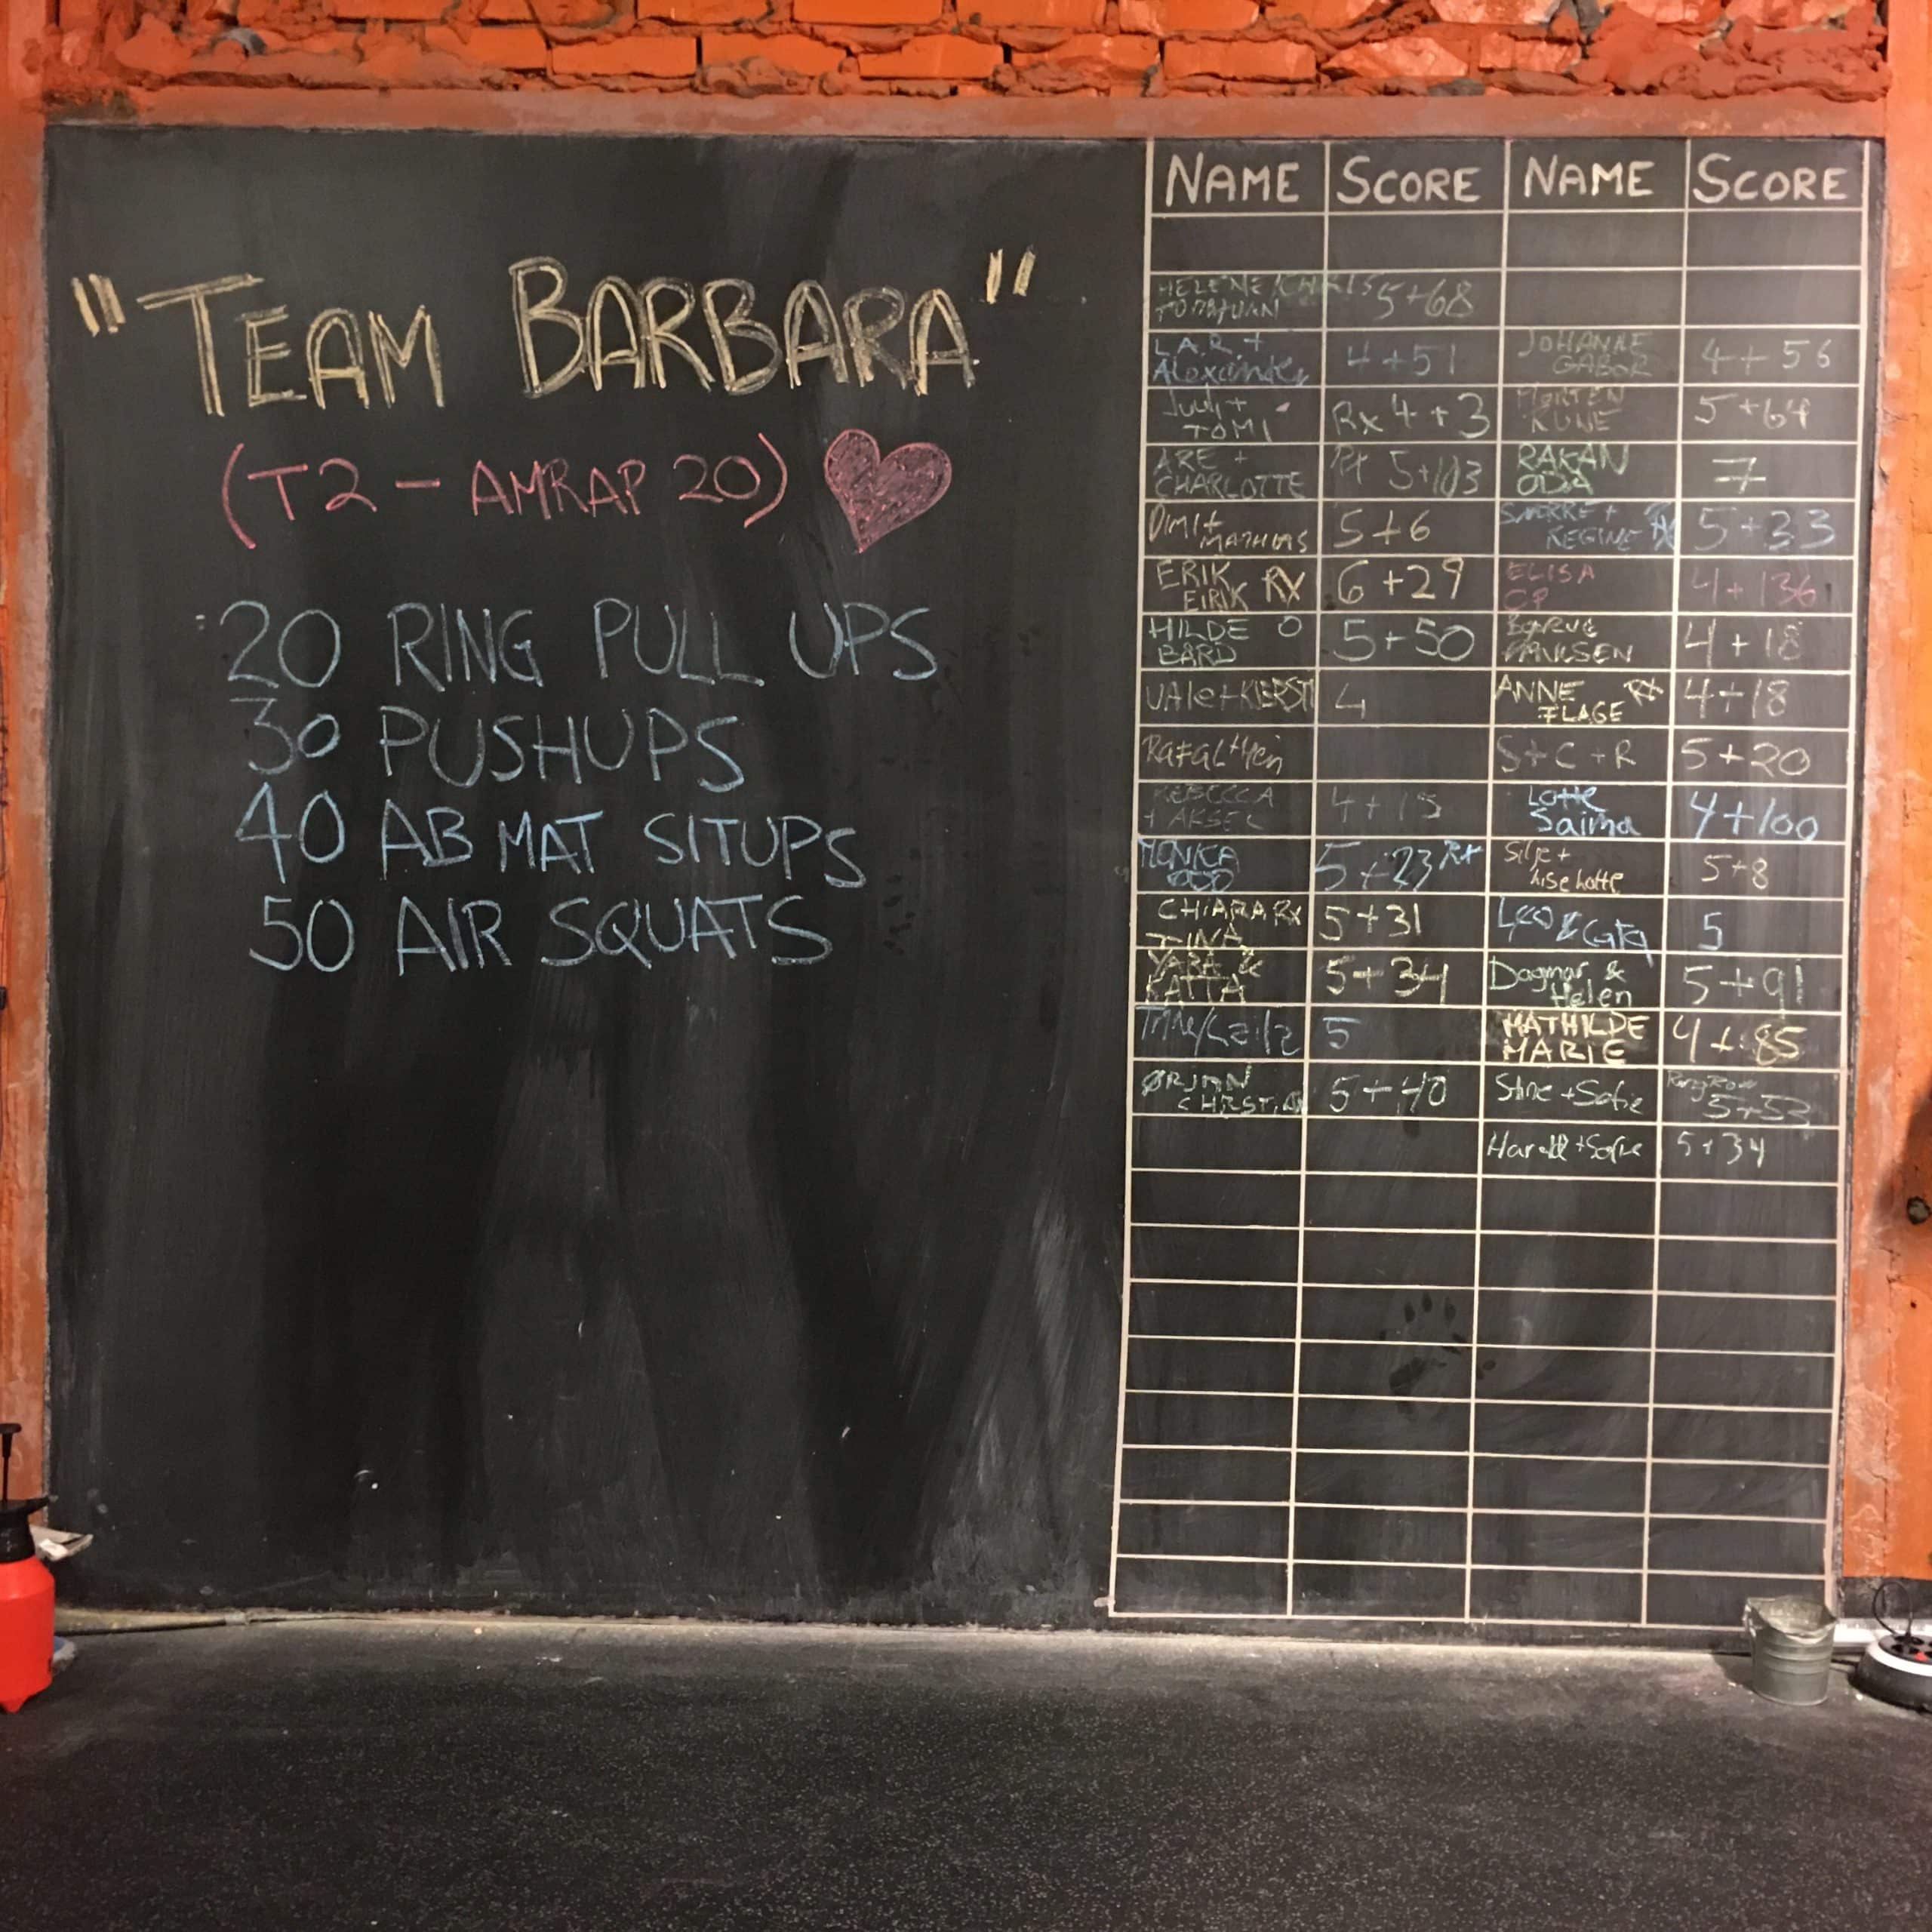 "TEAM BARBARA"
(T2 - AMRAP 20)
20 RING PULL UPS
30 PUSHUPS
40 AB MAT SITUPS
50 AIR SQUATS
NAME SCORE NAME SCORE
HELENE/CHRIS 5+68
L.A.R. + JOHANNE
Alexander 4+51 GABOR 4+56
TOMI Rx 4+3 MORTEN RUNE 5+64
ARE + RAKAN
CHARLOTTE Rx 5+103 ODA 7
DIMI + SVERRE +
MATHIAS 5+6 REGINE Rx 5+33
ERIK ELISA
EIRIK RX 6+29 CP 4+136
HILDE O
BÅRD 5+50 PAULSEN 4+18
VAle+KJERSTI 4 ANNE FLAGE Rx 4+18
Rafal+ S+C+R 5+20
REBECCA Lotte
+ AKSEL 4+15 Saima 4+100
MONICA Silje +
ODD 5+23 Rx Lise lotte 5+8
CHIARA Rx
TINA 5+31 Leo & 5
YARA & Dagmar &
KATTA 5+34 Helen 5+91
Trine/Laila 5 MATHILDE
MARIE 4+85
ØRJAN Stine +Sofie Ring Row
CHRISTIAN 5+40 5+53
Harald+Sofie 5+34